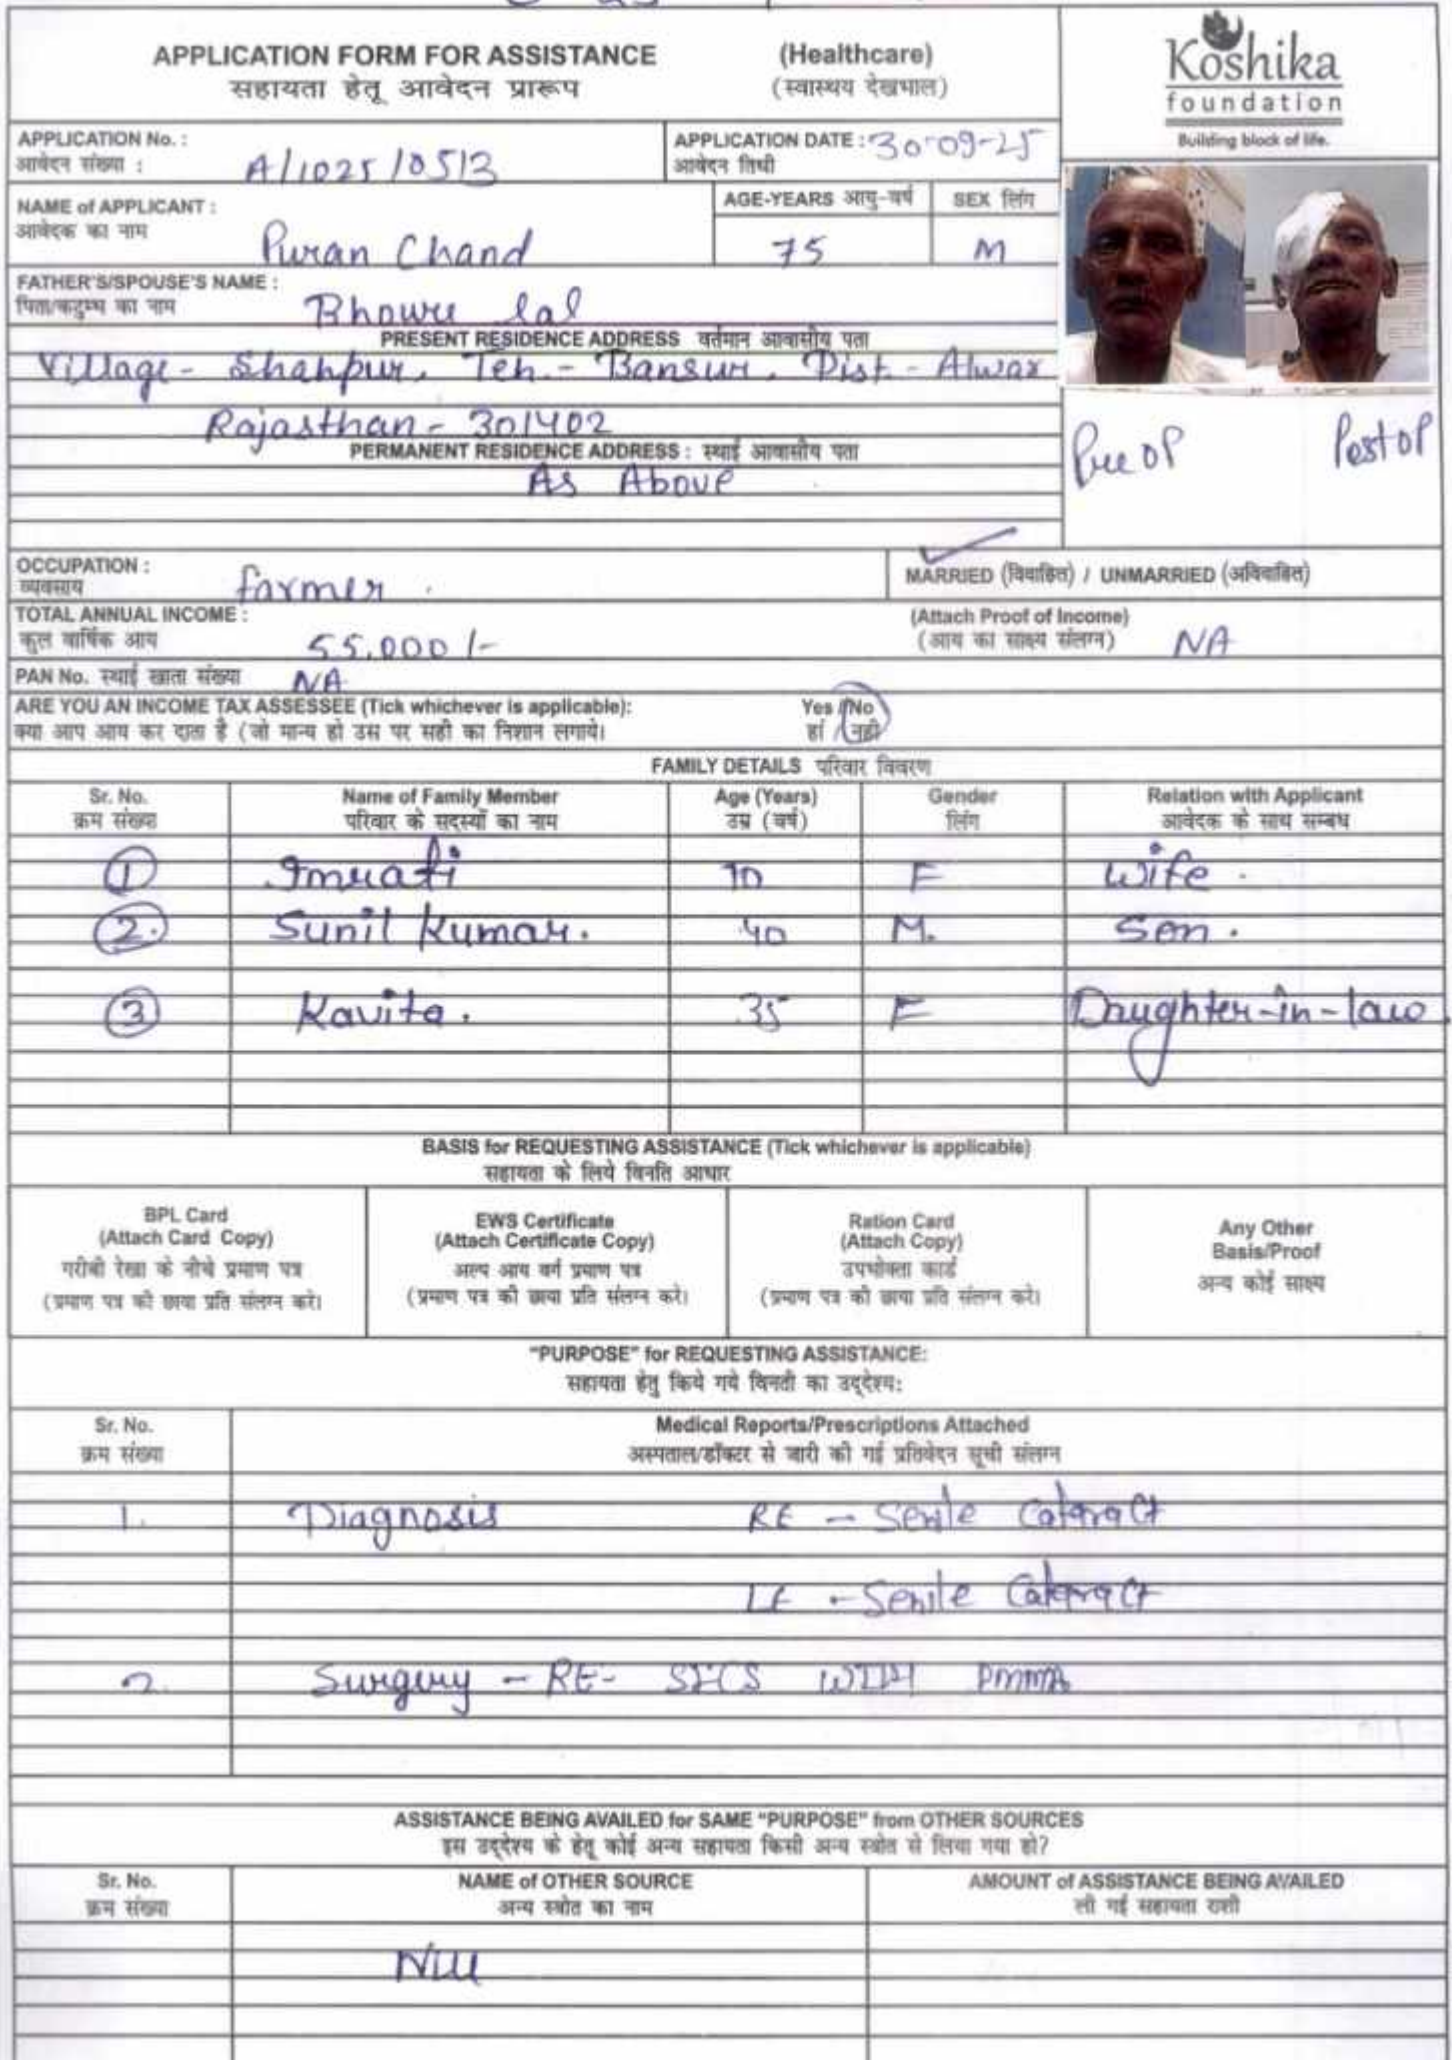 APPLICATION FORM FOR ASSISTANCE (Healthcare)
सहायता हेतू आवेदन प्रारूप (स्वास्थय देखभाल)
Koshika
foundation
Building block of life.
APPLICATION No. :
आवेदन संख्या : A/1025/0513
APPLICATION DATE : 30-09-25
आवेदन तिथी
NAME of APPLICANT :
आवेदक का नाम Puran Chand
AGE-YEARS आयु-वर्ष
75
SEX लिंग
M
FATHER'S/SPOUSE'S NAME :
पिता/कटुम्ब का नाम Bhowre lal
PRESENT RESIDENCE ADDRESS वर्तमान आवासीय पता
Village - Shahpur, Teh. - Bansur, Dist. - Alwar
Rajasthan - 301402
PERMANENT RESIDENCE ADDRESS : स्थाई आवासीय पता
As Above
Pre OP Post OP
OCCUPATION :
व्यवसाय farmer
MARRIED (विवाहित) / UNMARRIED (अविवाहित)
TOTAL ANNUAL INCOME :
कुल वार्षिक आय 55,000/-
(Attach Proof of Income)
(आय का साक्ष्य संलग्न) NA
PAN No. स्थाई खाता संख्या NA
ARE YOU AN INCOME TAX ASSESSEE (Tick whichever is applicable): Yes / No
क्या आप आय कर दाता है (जो मान्य हो उस पर सही का निशान लगाये। हां / नही
FAMILY DETAILS परिवार विवरण
Sr. No. Name of Family Member Age (Years) Gender Relation with Applicant
क्रम संख्या परिवार के सदस्यों का नाम उम्र (वर्ष) लिंग आवेदक के साथ सम्बध
1 Imrati 70 F Wife.
2. Sunil Kumar. 40 M. Son.
3 Kavita. 35 F Daughter-in-law.
BASIS for REQUESTING ASSISTANCE (Tick whichever is applicable)
सहायता के लिये विनति आधार
BPL Card
(Attach Card Copy)
गरीबी रेखा के नीचे प्रमाण पत्र
(प्रमाण पत्र की छाया प्रति संलग्न करे।
EWS Certificate
(Attach Certificate Copy)
अल्प आय वर्ग प्रमाण पत्र
(प्रमाण पत्र की छाया प्रति संलग्न करे।
Ration Card
(Attach Copy)
उपभोक्ता कार्ड
(प्रमाण पत्र की छाया प्रति संलग्न करे।
Any Other
Basis/Proof
अन्य कोई साक्ष्य
"PURPOSE" for REQUESTING ASSISTANCE:
सहायता हेतु किये गये विनती का उद्देश्य:
Sr. No. Medical Reports/Prescriptions Attached
क्रम संख्या अस्पताल/डॉक्टर से जारी की गई प्रतिवेदन सूची संलग्न
1. Diagnosis RE - Senile Cataract
LE - Senile Cataract
2. Surgery - RE- SICS WITH PMMA
ASSISTANCE BEING AVAILED for SAME "PURPOSE" from OTHER SOURCES
इस उद्देश्य के हेतू कोई अन्य सहायता किसी अन्य स्त्रोत से लिया गया हो?
Sr. No. NAME of OTHER SOURCE AMOUNT of ASSISTANCE BEING AVAILED
क्रम संख्या अन्य स्त्रोत का नाम ली गई सहायता राशी
Nill